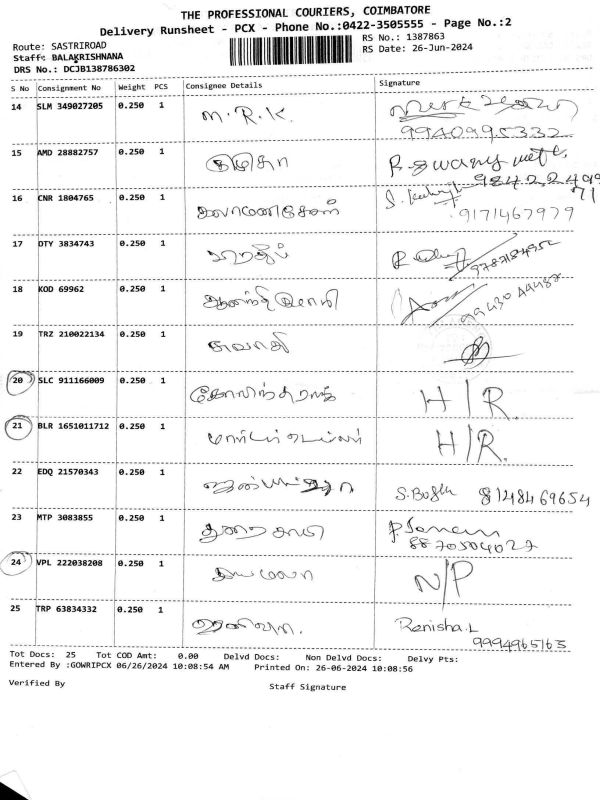 THE PROFESSIONAL COURIERS, COIMBATORE
Delivery Runsheet - PCX - Phone No.:0422-3505555 - Page No.:2
Route: SASTRIROAD
Staff: BALAKRISHNANA
DRS No.: DCJB138786302
RS No.: 1387863
RS Date: 26-Jun-2024
S No Consignment No Weight PCS Consignee Details Signature
14 SLM 349027205 0.250 1 M.R.K.
9940995332
15 AMD 28882757 0.250 1
16 CNR 1804765 0.250 1 கலாமணிசேகர்
9171467979
17 DTY 3834743 0.250 1
9787184952
18 KOD 69962 0.250 1
99430 44482
19 TRZ 210022134 0.250 1 சுவாதி
20 SLC 911166009 0.250 1 கோவிந்தராஜ் H/R.
21 BLR 1651011712 0.250 1 H/R.
22 EDQ 21570343 0.250 1 8148469654
23 MTP 3083855 0.250 1 துரைசாமி
8870504027
24 VPL 222038208 0.250 1 N/P
25 TRP 63834332 0.250 1 Renisha.L
9994965163
Tot Docs: 25 Tot COD Amt: 0.00 Delvd Docs: Non Delvd Docs: Delvy Pts:
Entered By :GOWRIPCX 06/26/2024 10:08:54 AM Printed On: 26-06-2024 10:08:56
Verified By Staff Signature